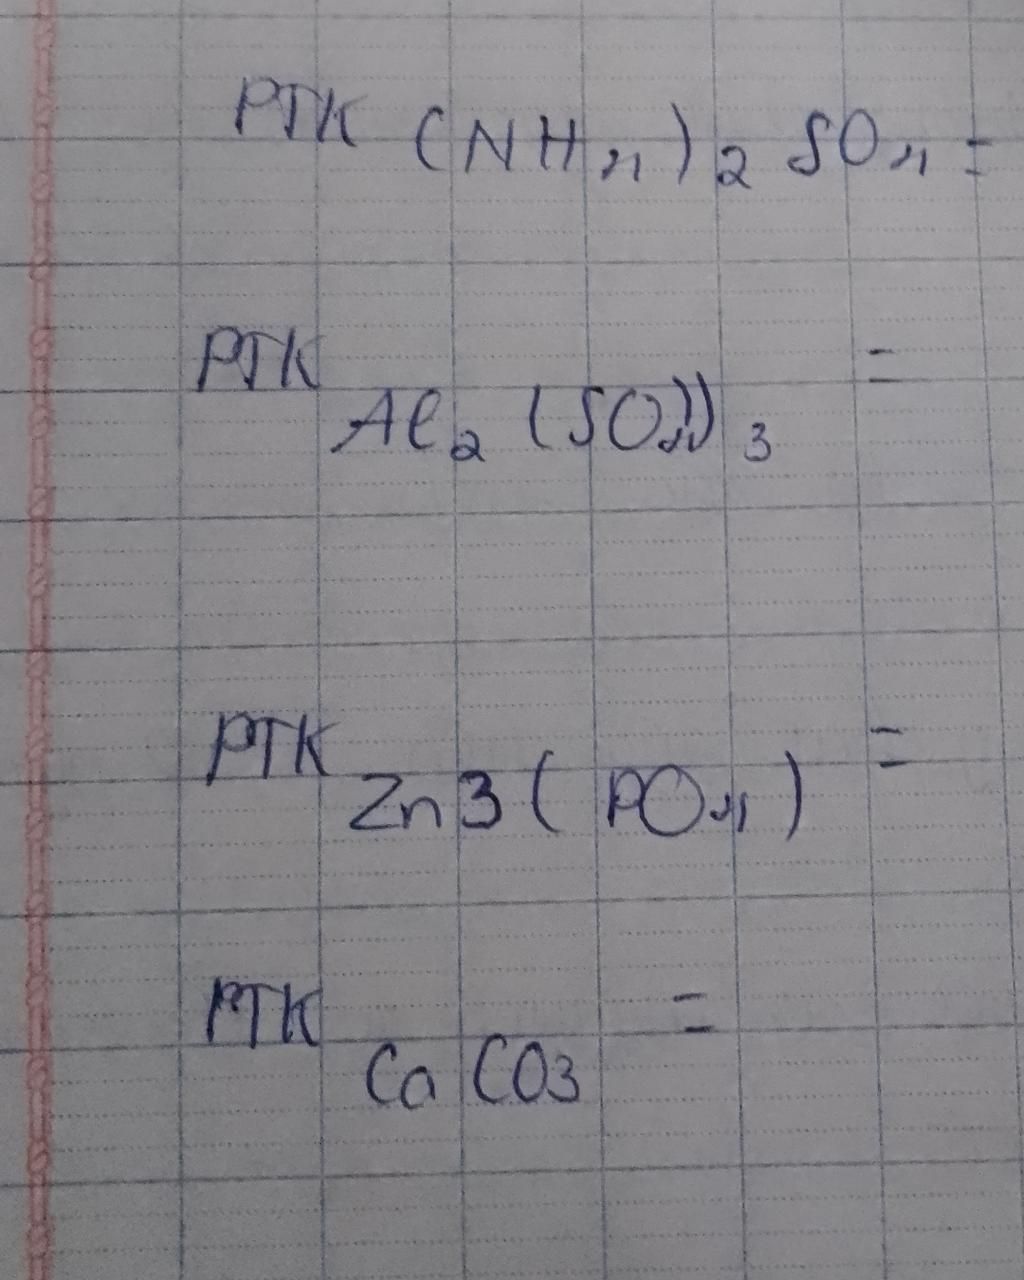 PTK (NH4)2 SO4 =
PTK Al2 (SO4))3 =
PTK Zn3 ( PO4 ) =
PTK Ca CO3 =